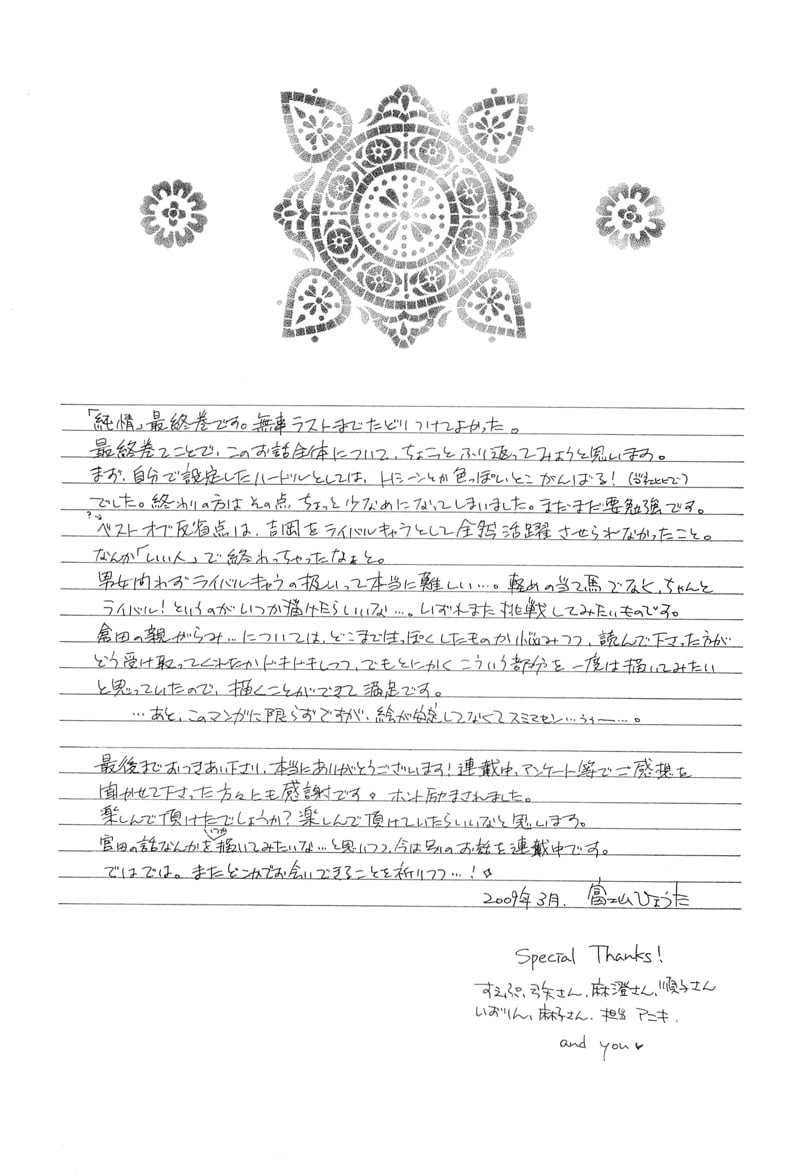 「純情」最終巻です。無事ラストまでたどりつけてよかった。
最終巻てことで、このお話全体について、ちょこっとふり返ってみようと思います。
まず、自分で設定したハードルとしては、Hシーンとか色っぽいとこがんばる!(当社比で)
でした。終わりの方はその点、ちょっと少なめになってしまいました。まだまだ要勉強です。
?→ベストオブ反省点は、吉岡をライバルキャラとして全然活躍させられなかったこと。
なんか「いい人」で終わっちゃったなぁと。
男女問わずライバルキャラの扱いって本当に難しい…。軽めの当て馬でなく、ちゃんと
ライバル!というのがいつか描けたらいいな…。いずれまた挑戦してみたいものです。
倉田の親がらみ…については、どこまではっぽくしたものか悩みつつ、読んで下さった方が
どう受け取ってくれたかドキドキしつつ、でもとにかくこういう部分を一度は描いてみたい
と思っていたので、描くことができて満足です。
…あと、このマンガに限らずですが、絵が安定してなくてスミマセン…うぅー…。
最後までおつきあい下さり、本当にありがとうございます!連載中、アンケート等でご感想を
聞かせて下さった方々にも感謝です。ホント励まされました。
楽しんで頂けたでしょうか?楽しんで頂けていたらいいなと思います。
宮田の話なんかをいつか描いてみたいな…と思いつつ、今は別のお話を連載中です。
ではでは。またどこかでお会いできることを祈りつつ…!☆
2009年3月. 富士山ひょうた
Special Thanks!
すえぷ、弓矢さん、麻澄さん、順子さん
いおりん、麻子さん、担当アニキ.
and you♥